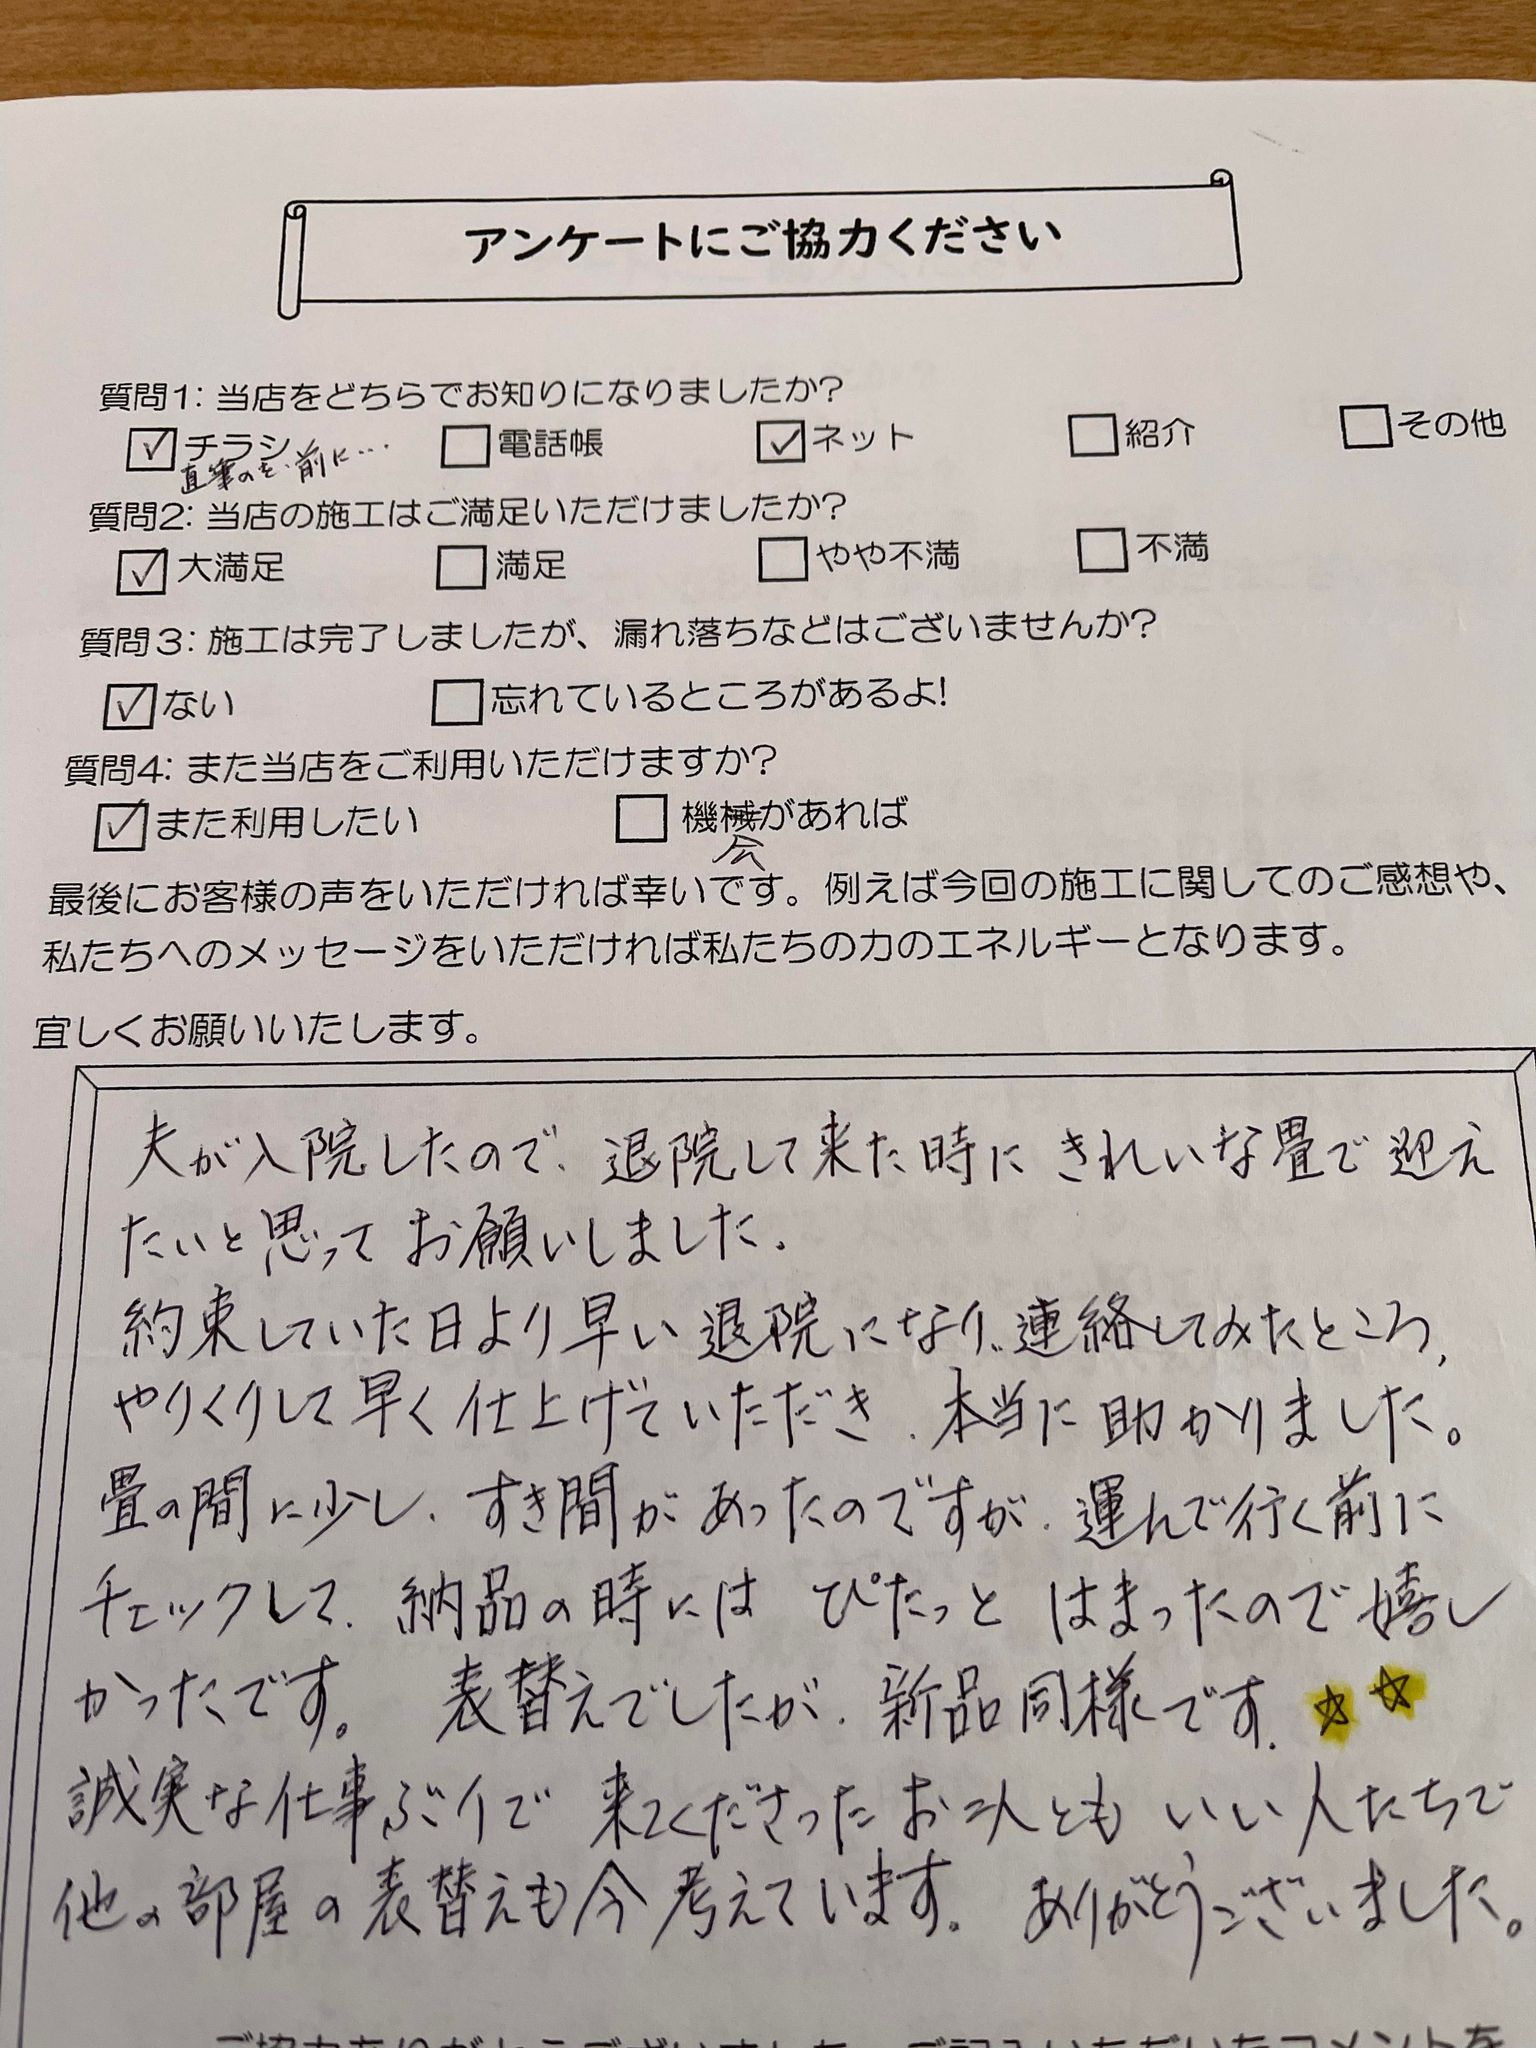 アンケートにご協力ください
質問1: 当店をどちらでお知りになりましたか?
☑チラシ ☐電話帳 ☑ネット ☐紹介 ☐その他
直筆のを、前に…
質問2: 当店の施工はご満足いただけましたか?
☑大満足 ☐満足 ☐やや不満 ☐不満
質問3: 施工は完了しましたが、漏れ落ちなどはございませんか?
☑ない ☐忘れているところがあるよ!
質問4: また当店をご利用いただけますか?
☑また利用したい ☐機械があれば
会
最後にお客様の声をいただければ幸いです。例えば今回の施工に関してのご感想や、
私たちへのメッセージをいただければ私たちの力のエネルギーとなります。
宜しくお願いいたします。
夫が入院したので、退院して来た時にきれいな畳で迎え
たいと思ってお願いしました。
約束していた日より早い退院になり、連絡してみたところ、
やりくりして早く仕上げていただき、本当に助かりました。
畳の間に少し、すき間があったのですが、運んで行く前に
チェックして、納品の時にはぴたっとはまったので嬉し
かったです。表替えでしたが、新品同様です。☆☆
誠実な仕事ぶりで来てくださったお二人ともいい人たちで
他の部屋の表替えも今考えています。ありがとうございました。